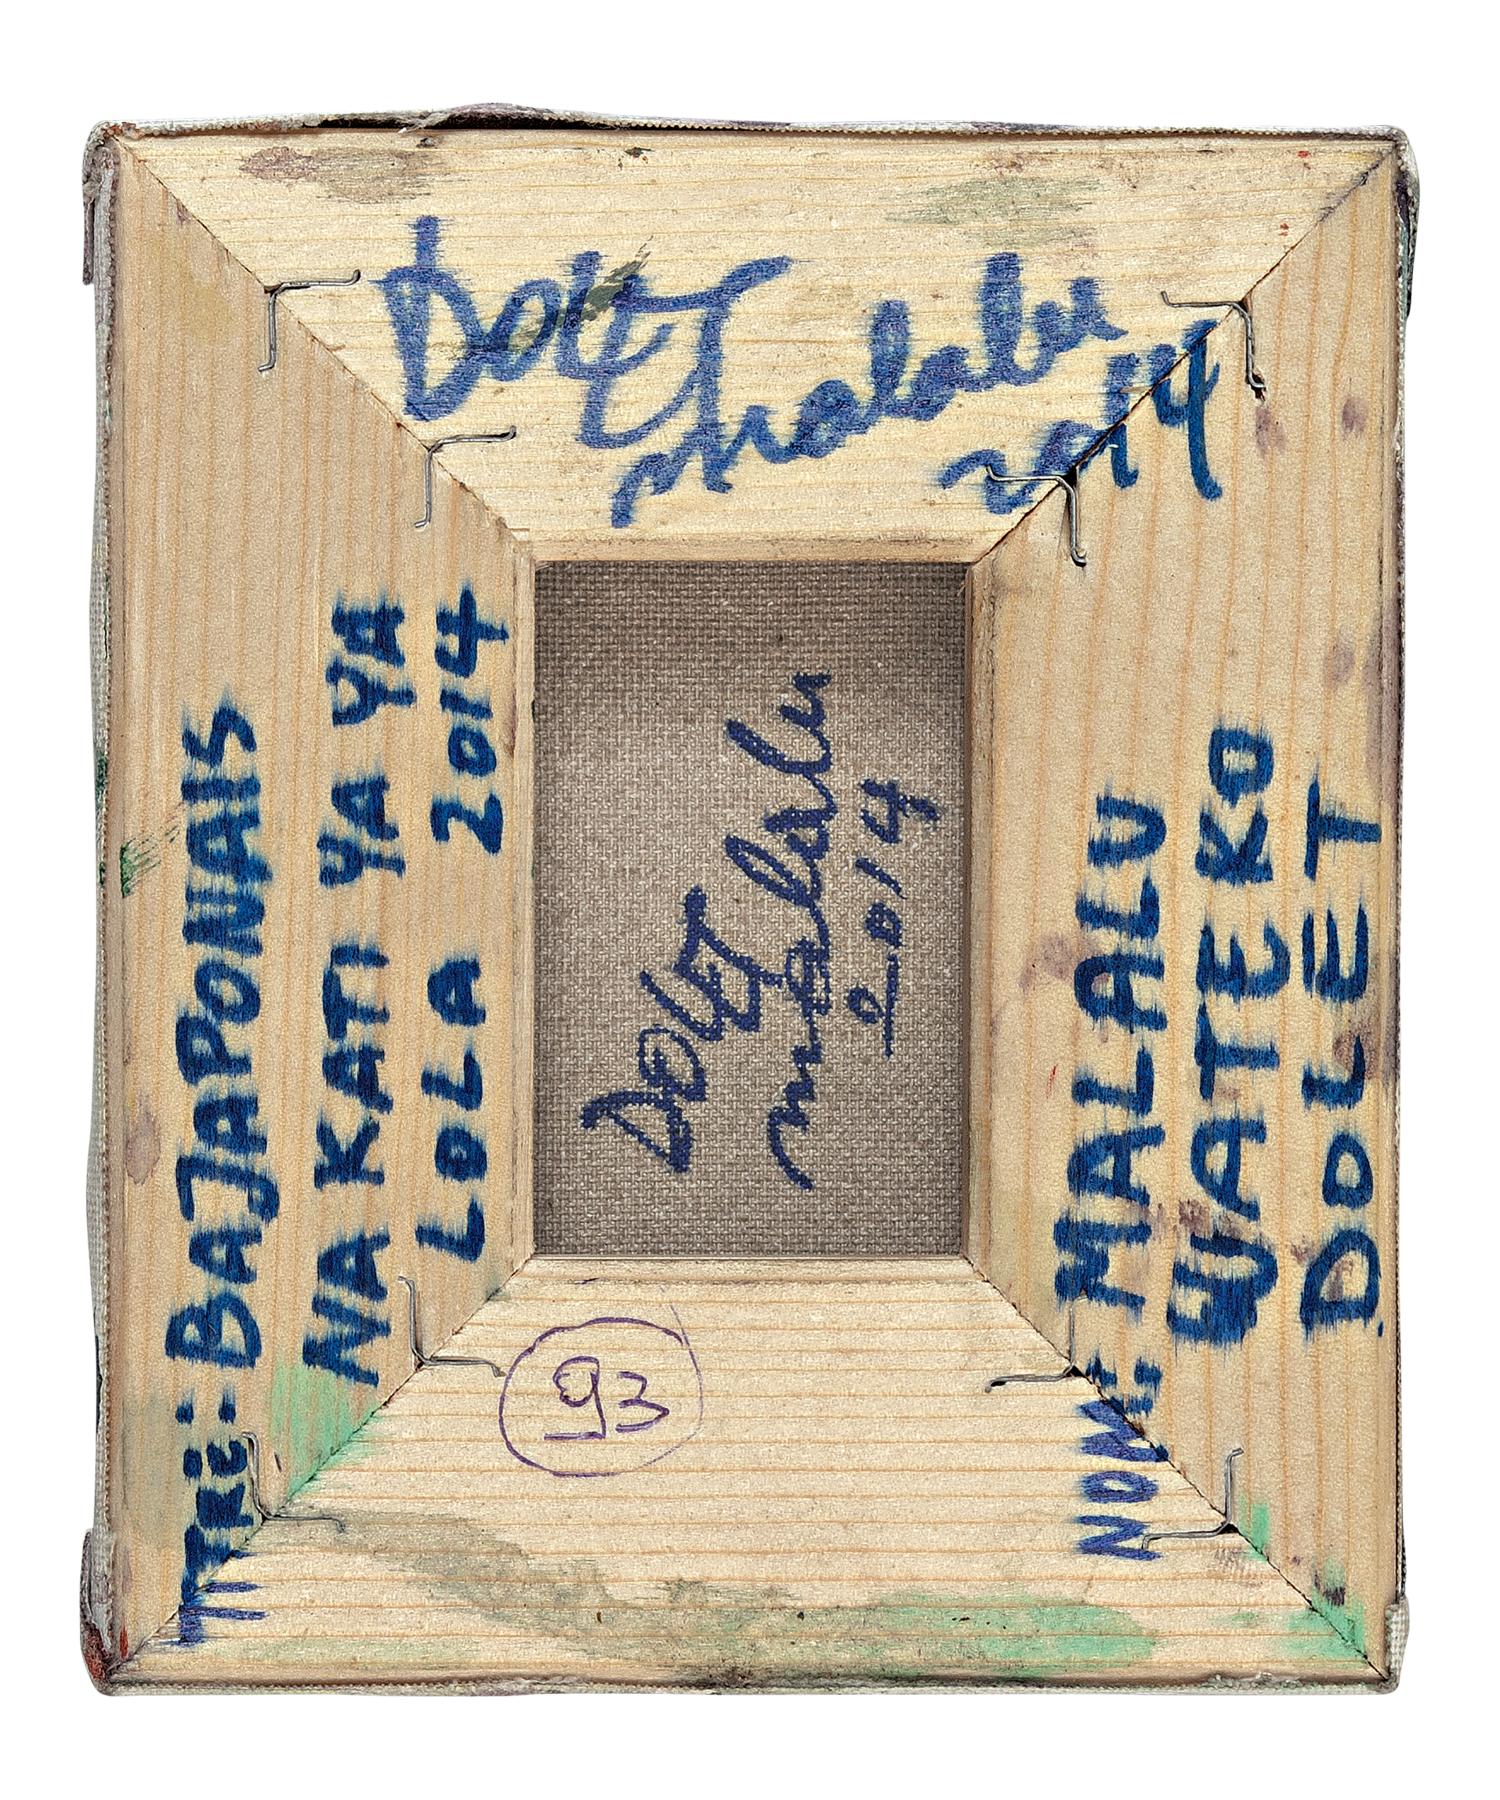 DOLET
Malalu
2014
TITRE: BAJAPONAIS
NA KATI YA YA
LOLA 2014
DOLET
malalu
2014
NOM: MALALU
WATEKO
DOLET
93